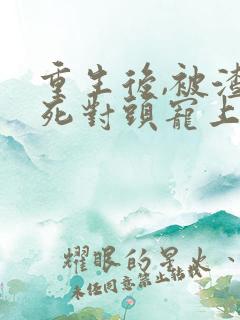 重生後,被渣
死對頭寵上
耀眼的星火、
未任同意禁止轉載